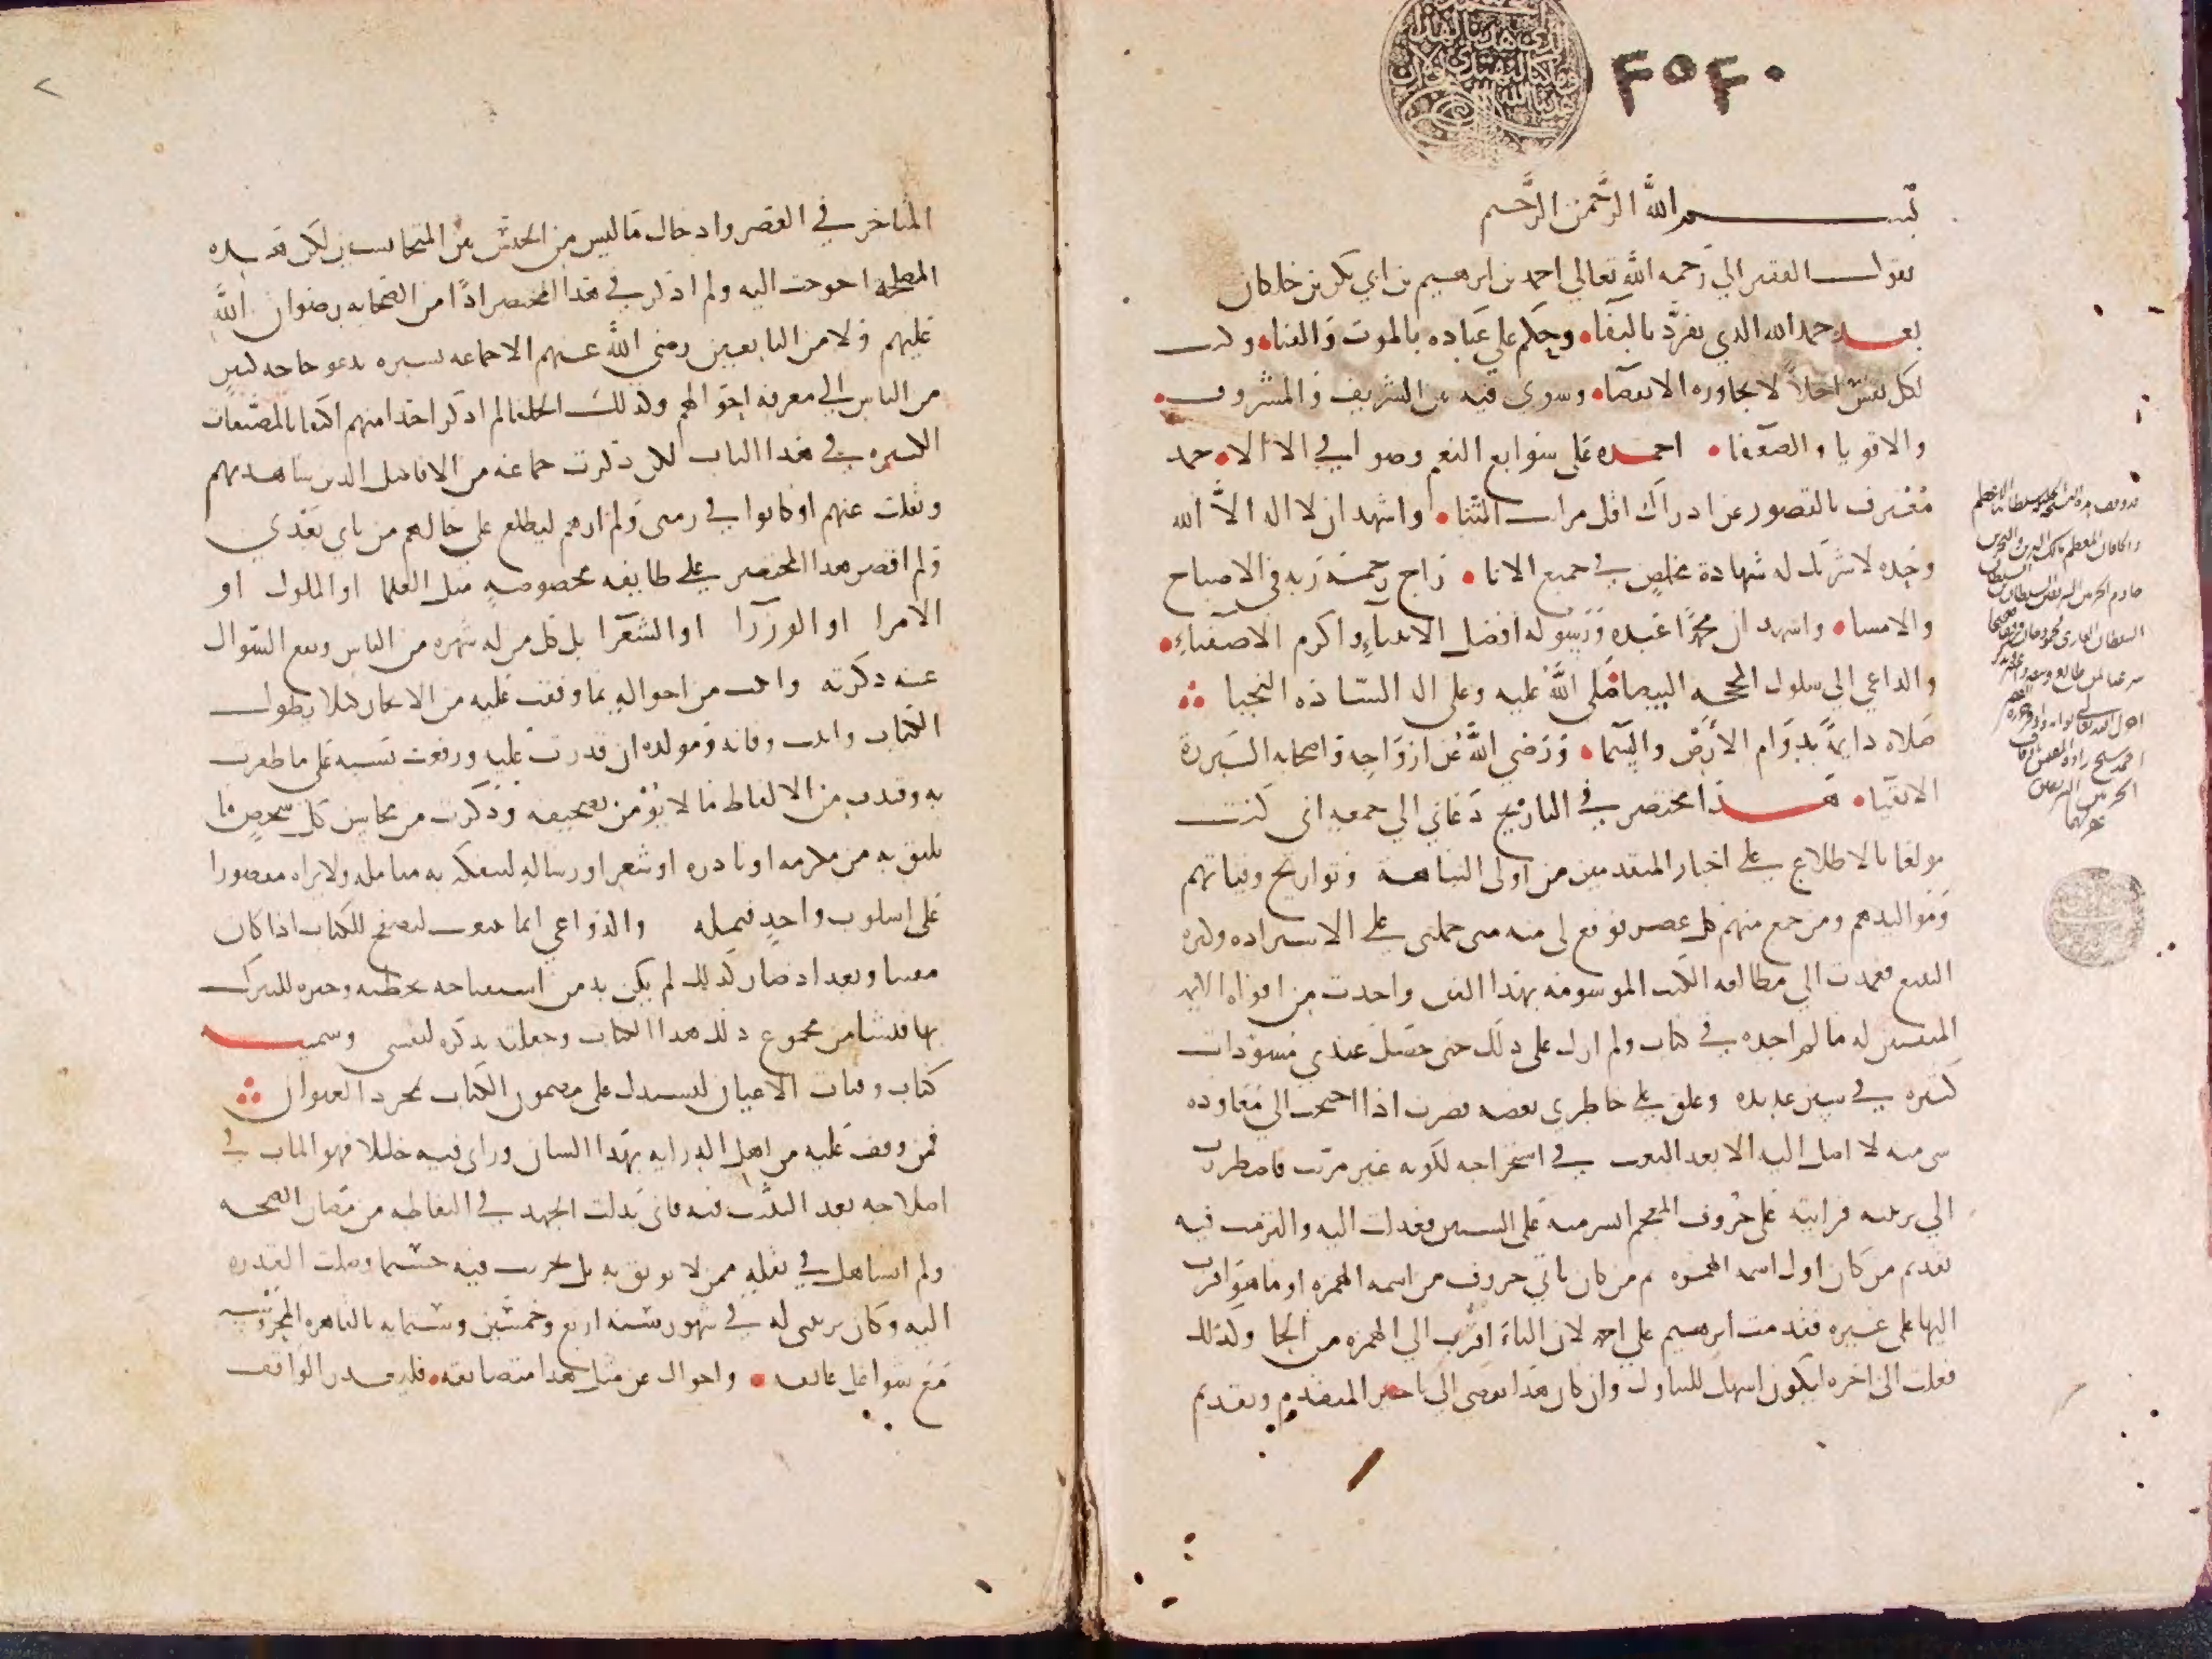 ٣٥٣٠
بسم الله الرحمن الرحيم
يقول الفقير الي رحمه الله تعالي احمد بن ابرهيم بن ابي بكر بن خلكان
بعد حمد الله الذي تفرد بالبقاء وحكم علي عباده بالموت والفناء وكتب
لكل نفس اجلا لا تجاوزه الانقضاء وسوى فيه بين الشريف والمشروف
والاقويا والضعفا احمده على سوابغ النعم وضوافي الالاء حمد
معترف بالقصور عن ادراك اقل مراتب الثنا واشهد ان لا اله الا الله
وحده لا شريك له شهادة مخلص في جميع الانا راج رحمة ربه في الاصباح
والامساء واشهد ان محمدا عبده ورسوله افضل الانبياء واكرم الاصفياء
والداعي الي سلوك المحجه البيضا صلى الله عليه وعلى اله السادة النجبا
صلاه دايمة بدوام الأرض والسما ورضي الله عن ازواجه واصحابه البررة
الاتقيا هذا مختصر في التاريخ دعاني الي جمعه اني كنت
مولعا بالاطلاع على اخبار المتقدمين من اولى النباهة وتواريخ وفياتهم
ومواليدهم ومن جمع منهم كل عصر فوقع لي منه شي حملني على الاستزاده وكثره
التتبع فعمدت الي مطالعه الكتب الموسومه بهذا الفن واخذت من افواه الايمه
المتقنين له ما لم اجده في كتاب ولم ازل على ذلك حتى حصل عندي مسودات
كثيره في سنين عديده وعلق على خاطري بعضه فصرت اذا احتجت الي معاوده
شي منه لا اصل اليه الا بعد التعب في استخراجه لكونه غير مرتب فاضطررت
الي ترتيبه فرايته على حروف المعجم ايسر منه على السنين فعدلت اليه والتزمت فيه
تقديم من كان اول اسمه الهمزه ثم من كان ثاني حروف من اسمه الهمزه او ما هو اقرب
اليها على غيره فقدمت ابرهيم على احمد لان الباء اقرب الي الهمزه من الحا وكذلك
فعلت الى اخره ليكون اسهل للتناول وان كان هذا يفضي الى تاخير المتقدم وتقديم
المتاخر في العصر وادخال ما ليس من الجنس بين المتجانسين لكن هذه
المصلحه احوجت اليه ولم اذكر في هذا المختصر احدا من الصحابه رضوان الله
عليهم ولا من التابعين رضي الله عنهم الا جماعه يسيره تدعو حاجه كثير
من الناس الي معرفة احوالهم وكذلك الخلفا لم اذكر احدا منهم اكتفا بالمصنفات
الكثيره في هذا الباب لكن ذكرت جماعه من الافاضل الذين شاهدتهم
ونقلت عنهم او كانوا في زمني ولم ارهم ليطلع على حالهم من ياتي بعدي
ولم اقصر هذا المختصر على طايفه مخصوصه مثل العلما او الملوك او
الامرا او الوزرا او الشعرا بل كل من له شهره من الناس ويقع السوال
عنه ذكرته واتيت من احواله بما وقفت عليه من الايجاز كيلا يطول
الكتاب واثبت وفاته ومولده ان قدرت عليه ورفعت نسبه على ما ظفرت
به وقيدت من الالفاظ ما لا يؤمن تصحيفه وذكرت من محاسن كل شخص ما
يليق به من مكرمه او نادره او شعر او رساله ليتفكه به متامله ولا يراه مقصورا
على اسلوب واحد فيمله والدواعي انما تنبعث لتصفح الكتاب اذا كان
مفننا وبعد اذ صار كذلك لم يكن بد من استفتاحه بخطبه وجيزه للتبرك
بها فنشا من مجموع ذلك هذا الكتاب وجعلته تذكره لنفسي وسميته
كتاب وفيات الاعيان ليستدل على مضمون الكتاب بمجرد العنوان
فمن وقف عليه من اهل الدرايه بهذا الشان وراى فيه خللا فهو المثاب في
اصلاحه بعد التثبت فيه فاني بذلت الجهد في التقاطه من مظان الصحه
ولم اتساهل في نقله ممن لا يوثق به بل تحريت فيه حسبما وصلت القدره
اليه وكان ترتيبي له في شهور سنه اربع وخمسين وستمايه بالقاهره المحروسه
مع شواغل عايقه واحوال عن مثل هذا متضايقه فليعذر الواقف